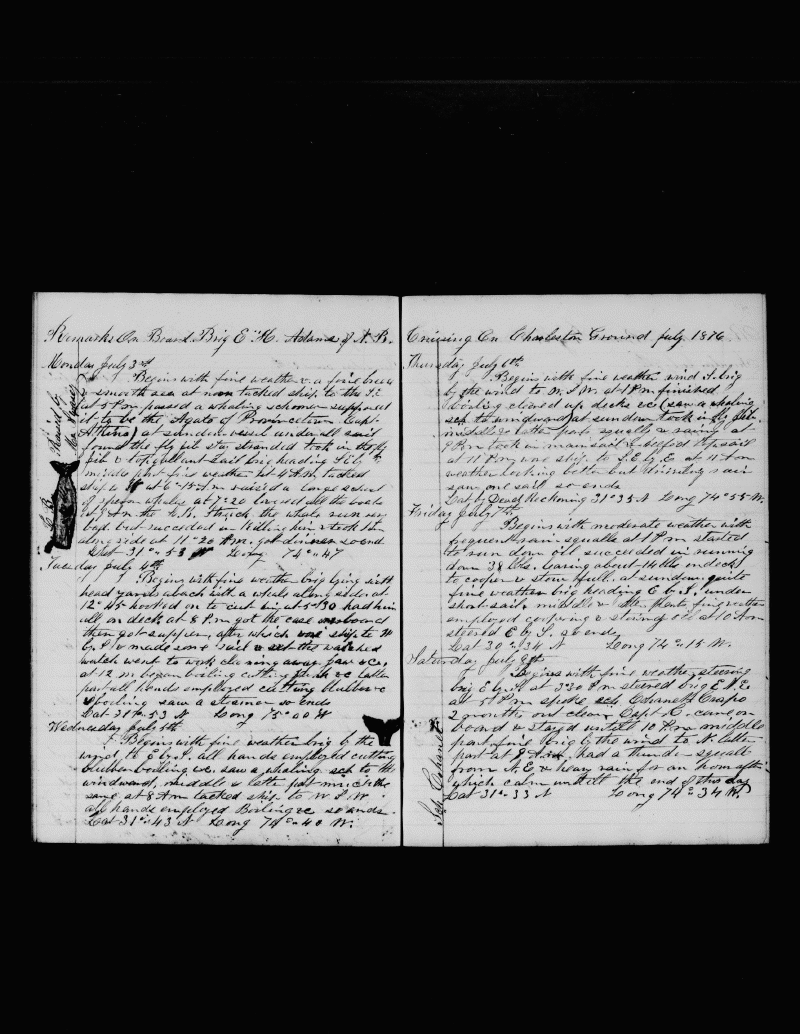 Remarks On Board Brig E. H. Adams of N. B.
Monday July 3rd
Begins with fine weather & a fine breeze
& smooth sea at noon tacked ship to the S.E.
at 5 P.m passed a whaling schooner supposed
it to be the Agate of Provincetown (Capt.
Atkins) at sundown vessel under all sail
found the fly jib stay stranded took in the fly
jib & topgallant sail brig heading S E by
middle part fine weather at 4 A.m tacked
ship to at 6-15 A.m raised a large school
of sperm whales at 7-20 lowered all the boats
at 8 A.m the L. B. Struck the whale run very
bad but succeeded in killing him & took him
along side at 11-20 A.m. got dinner so ends
Lat 31°-53 N Long 74°-47
L. B.
Raised by
Tuesday July 4th
Begins with fine weather brig lying with
head yards aback with a whale along side at
12-45 hooked on to cut in at 5-30 had him
all on deck at 8 P.m got the case on board
then got supper, after which wore ship to N
by E & made some sail & set the watches
watch went to work clearing away jaw &c.
at 12 m began boiling cutting &c latter
part all hands employed cutting blubber &c
& boiling saw a steamer so ends
Lat 31°-53 N Long 75°-00 W
Wednesday July 5th
Begins with fine weather brig by the
wind to E by S. all hands employed cutting
blubber boiling &c. saw a whaling sch to the
windward, middle & latter part much the
same at 8 A.m tacked ship to W S W
all hands employed Boiling &c so ends.
Lat 31°-43 N Long 74°-40 W.
Cruising On Charleston Ground July 1876
Thursday July 6th
Begins with fine weather wind S. brig
by the wind to W. S. W. at 1 P.m finished
boiling cleared up decks &c (saw a whaling
sch to windward) at sundown took in fly jib
middle & latter part squalls & rainy at
9 P.m took in mainsail & reefed topsail
at 11 P.m wore ship to S. E. by E at 4 A.m
weather looking better but raining
saw one sail so ends
Lat by Dead Reckoning 31°35 N Long 74°55 W.
Friday July 7th
Begins with moderate weather with
frequent rain squalls at 1 P.m started
to run down oil succeeded in running
down 38 bbls. leaving about 14 bbls on deck
to cooper & stow full. at sundown quite
fine weather brig heading E by S. under
short sail. middle & latter parts fine weather
employed coopering & stowing oil at 10 A.m
steered E by S. so ends
Lat 30°-34 N Long 74°-15 W.
Saturday July 8th
Begins with fine weather steering
brig E by S at 3-30 P.m steered brig E N. E.
at 5 P.m spoke sch
2 months out clean Capt came on
board & stayed untill 10 P.m middle
part fine brig by the wind to N. latter
part at 8 A.m. had a thunder squall
from N. E. & heavy rain for an hour after
which calm untill the end of this day
Lat 31°-33 N Long 74°-34 W.
Sch